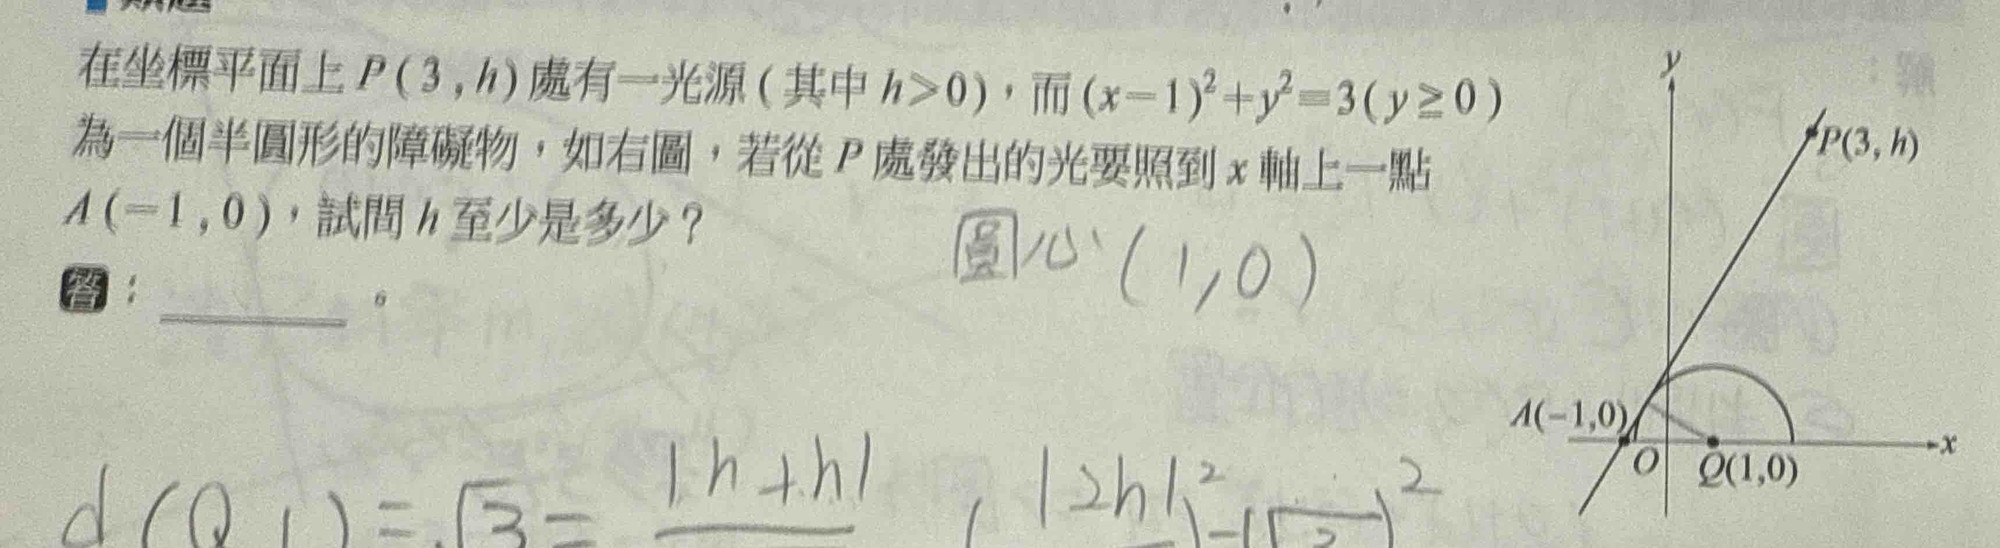 類題
在坐標平面上 P(3,h) 處有一光源(其中 h>0),而 (x-1)²+y²=3(y≥0)
為一個半圓形的障礙物,如右圖,若從 P 處發出的光要照到 x 軸上一點
A(-1,0),試問 h 至少是多少?
答:
圓心(1,0)
d(Q
)=√3=|h+h|
|2h|
y
P(3,h)
A(-1,0)
O
Q(1,0)
x
解: